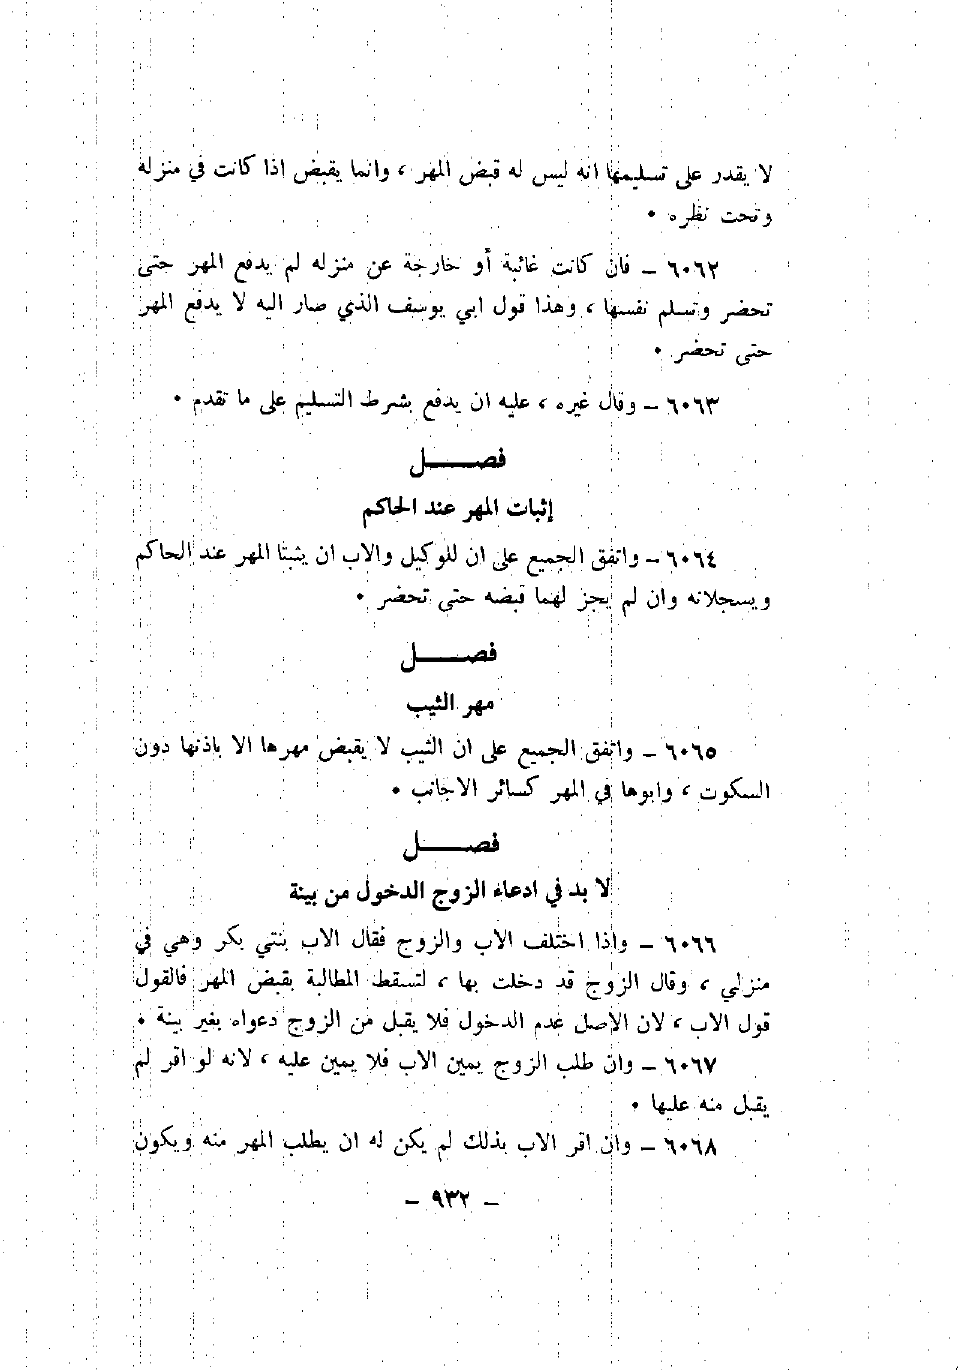 لا يقدر على تسليمها انه ليس له قبض المهر ، وانما يقبض اذا كانت في منزله
وتحت نظره •
٦٠٦٢ – فان كانت غائبة أو خارجة عن منزله لم يدفع المهر حتى
تحضر وتسلم نفسها ، وهذا قول ابي يوسف الذي صار اليه لا يدفع المهر
حتى تحضر •
٦٠٦٣ – وقال غيره ، عليه ان يدفع بشرط التسليم على ما تقدم •
فصـــــل
إثبات المهر عند الحاكم
٦٠٦٤ – واتفق الجميع على ان للوكيل والاب ان يثبتا المهر عند الحاكم
ويسجلانه وان لم يجز لهما قبضه حتى تحضر •
فصـــــل
مهر الثيب
٦٠٦٥ – واتفق الجميع على ان الثيب لا يقبض مهرها الا باذنها دون
السكوت ، وابوها في المهر كسائر الاجانب •
فصـــــل
لا بد في ادعاء الزوج الدخول من بينة
٦٠٦٦ – واذا اختلف الاب والزوج فقال الاب بنتي بكر وهي في
منزلي ، وقال الزوج قد دخلت بها ، لتسقط المطالبة بقبض المهر فالقول
قول الاب ، لان الاصل عدم الدخول فلا يقبل من الزوج دعواه بغير بينة •
٦٠٦٧ – وان طلب الزوج يمين الاب فلا يمين عليه ، لانه لو اقر لم
يقبل منه عليها •
٦٠٦٨ – وان اقر الاب بذلك لم يكن له ان يطلب المهر منه ويكون
– ٩٣٢ –